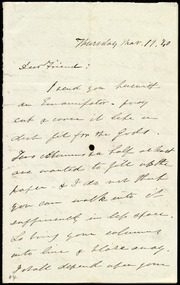 Thursday Mar. 19, 40
Dear Friend:
I send you herewith
an Emancipator - pray
cut & cover it like a
dish fit for the Gods.
Two columns & a half at least
are wanted to fill up the
paper. & I do not that
you can walk into it
sufficiently in less space.
So bring your columns
into line & blaze away.
I shall depend upon your